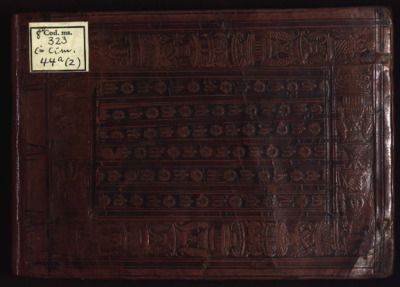 8° Cod. ms.
323
in Cim.
44a (2)